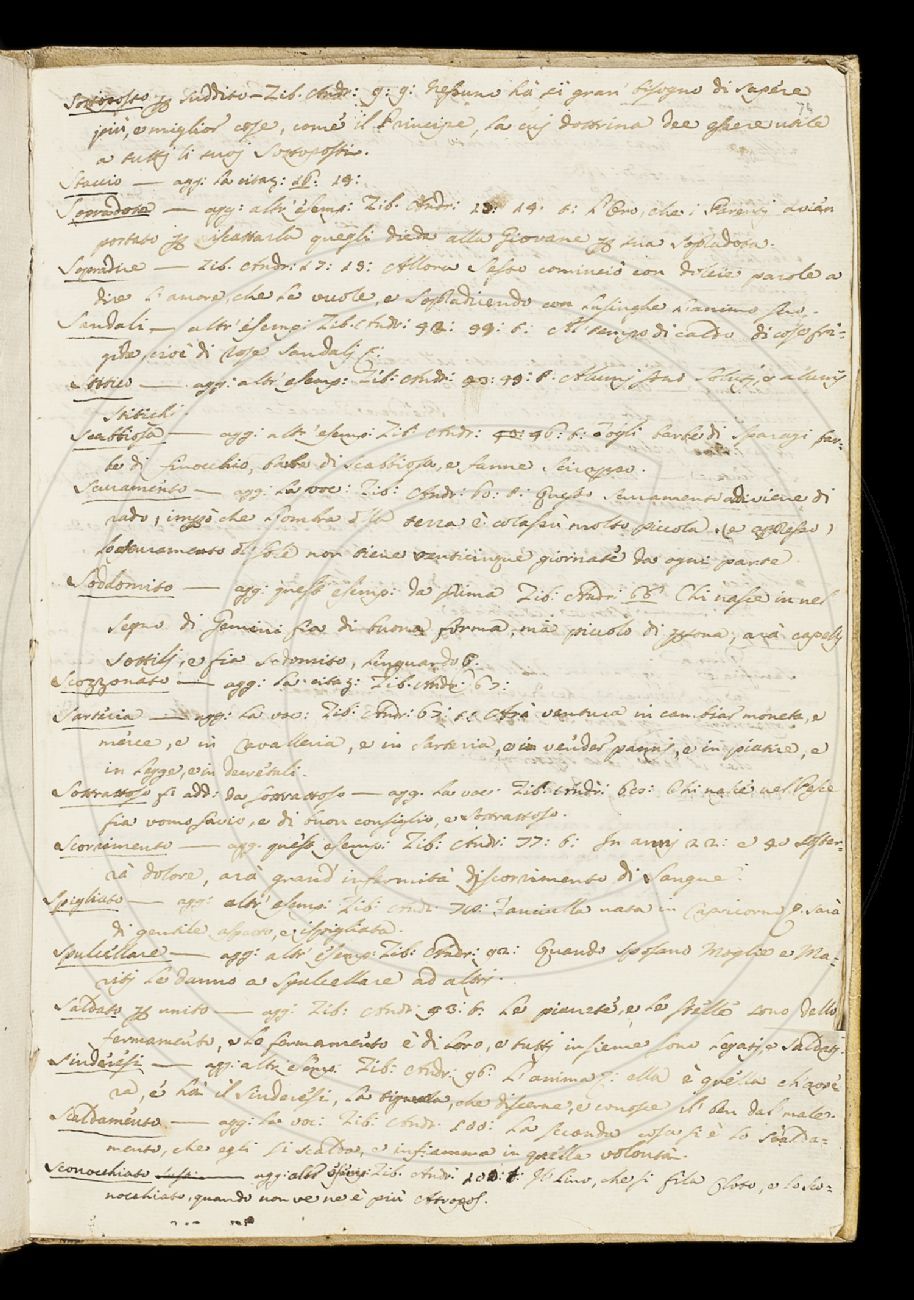 Sottoposto per Suddito – Zib. Andr: 9: 9: Nessuno hà sì gran bisogno di sapére
più, e miglior cose, comé il Principe, la cuj dottrina dee essere utile
a tuttj li suoj Sottopostj.
74
Staccio — agg: la citaz: 16: 19:
Sopradota — agg: altr' ésemp: Zib. Andr: 14: t: L'Oro, che i Parentj avéan
portato per riscattarla quegli diede alla Giovane per sua Sopradota.
Sopradire — Zib. Andr: 17: 19: Allora Sesto cominciò con dolcie parole a
dire l'amore, che le vuole, e Sopradicendo con lusinghe l'animo suo.
Sandali — altr' ésemp: Zib. Andr: 42: 44: t: Al tempo di caldo di cose fri-
gide, cioè di rose Sandalj
Stitico — agg: altr' ésemp: Zib: Andr: 43: t. Alcunj sono solutj, e alcunj
Stitichi.
Scabbiosa — agg: altr' ésemp: Zib. Andr: 46: t: Togli barbe di Sparagi bar-
be di finocchio, barba di Scabbiosa, e fanne Sciroppo.
Scuramento — agg: la voc: Zib: Andr: 60: t: Questo scuramento adiviene di
rado, che l'ombra della terra è colassù molto piccola (e appresso)
lo scuramento del Sole non tiene venticinque giornate da ogni parte.
Soddomito — agg: quest' ésemp: da prima Zib. Andr: 66: Chi nasce in nel
Segno di Gemini sia di buona forma, mà piccolo di persona, arà capellj
Sottilj, e sia Sodomito, linguardo
Scozzonato — agg: la citaz: Zib. Andr: 67:
Sarteria — agg: la voc: Zib: Andr: 67: t: Arà ventura in cambiar moneta, e
merce, e in Cavalleria, e in Sarteria, e in vender pannj, e in piatire, e
in legge, e in decretali.
Sottrattoso si add: da sottrattoso — agg. la voc: Zib: Andr: Chi nasce nel Pesce
sia vomo savio, e di buon consiglio, e Sottrattoso.
Scorrimento — agg: quest' ésemp: Zib: Andr: 77: t: In annj 22: e 40 soster-
rà dolore, arà grand' infermità discorrimento di Sangue
Spigliato — agg: altr' ésemp: Zib: Andr: Fanciulla nata in Capricorno sarà
di gentile aspetto, e ispigliata.
Spulcellare — agg: altr' ésemp: Zib: Andr: 92: Quando sposano Moglie e Ma-
ritj le danno a Spulcellare ad altrj.
Saldato per unito — agg: Zib: Andr: 93: t: Le pianeté, e le stéllé sono dello
fermamento, e lo fermamento è di loro, e tuttj insieme sono legatj, e Saldatj.
Sinderésj — agg: altr' ésemp: Zib: Andr: 96: L'anima: ella è quélla
rà, é hà il Sinderési, la, che discerne, e conosce il ben dal male.
Scaldamento — agg: la voc: Zib: Andr: 100: La seconda cosa si è lo Scalda-
mento, che egli si scalda, e infiamma in quelle volontà.
Sconocchiato — agg: altr' ésemp: Zib. Andr: Il Lino, che si fila Cloto, e lo Sco-
nocchiato, quando non ve ne è più Atropos.